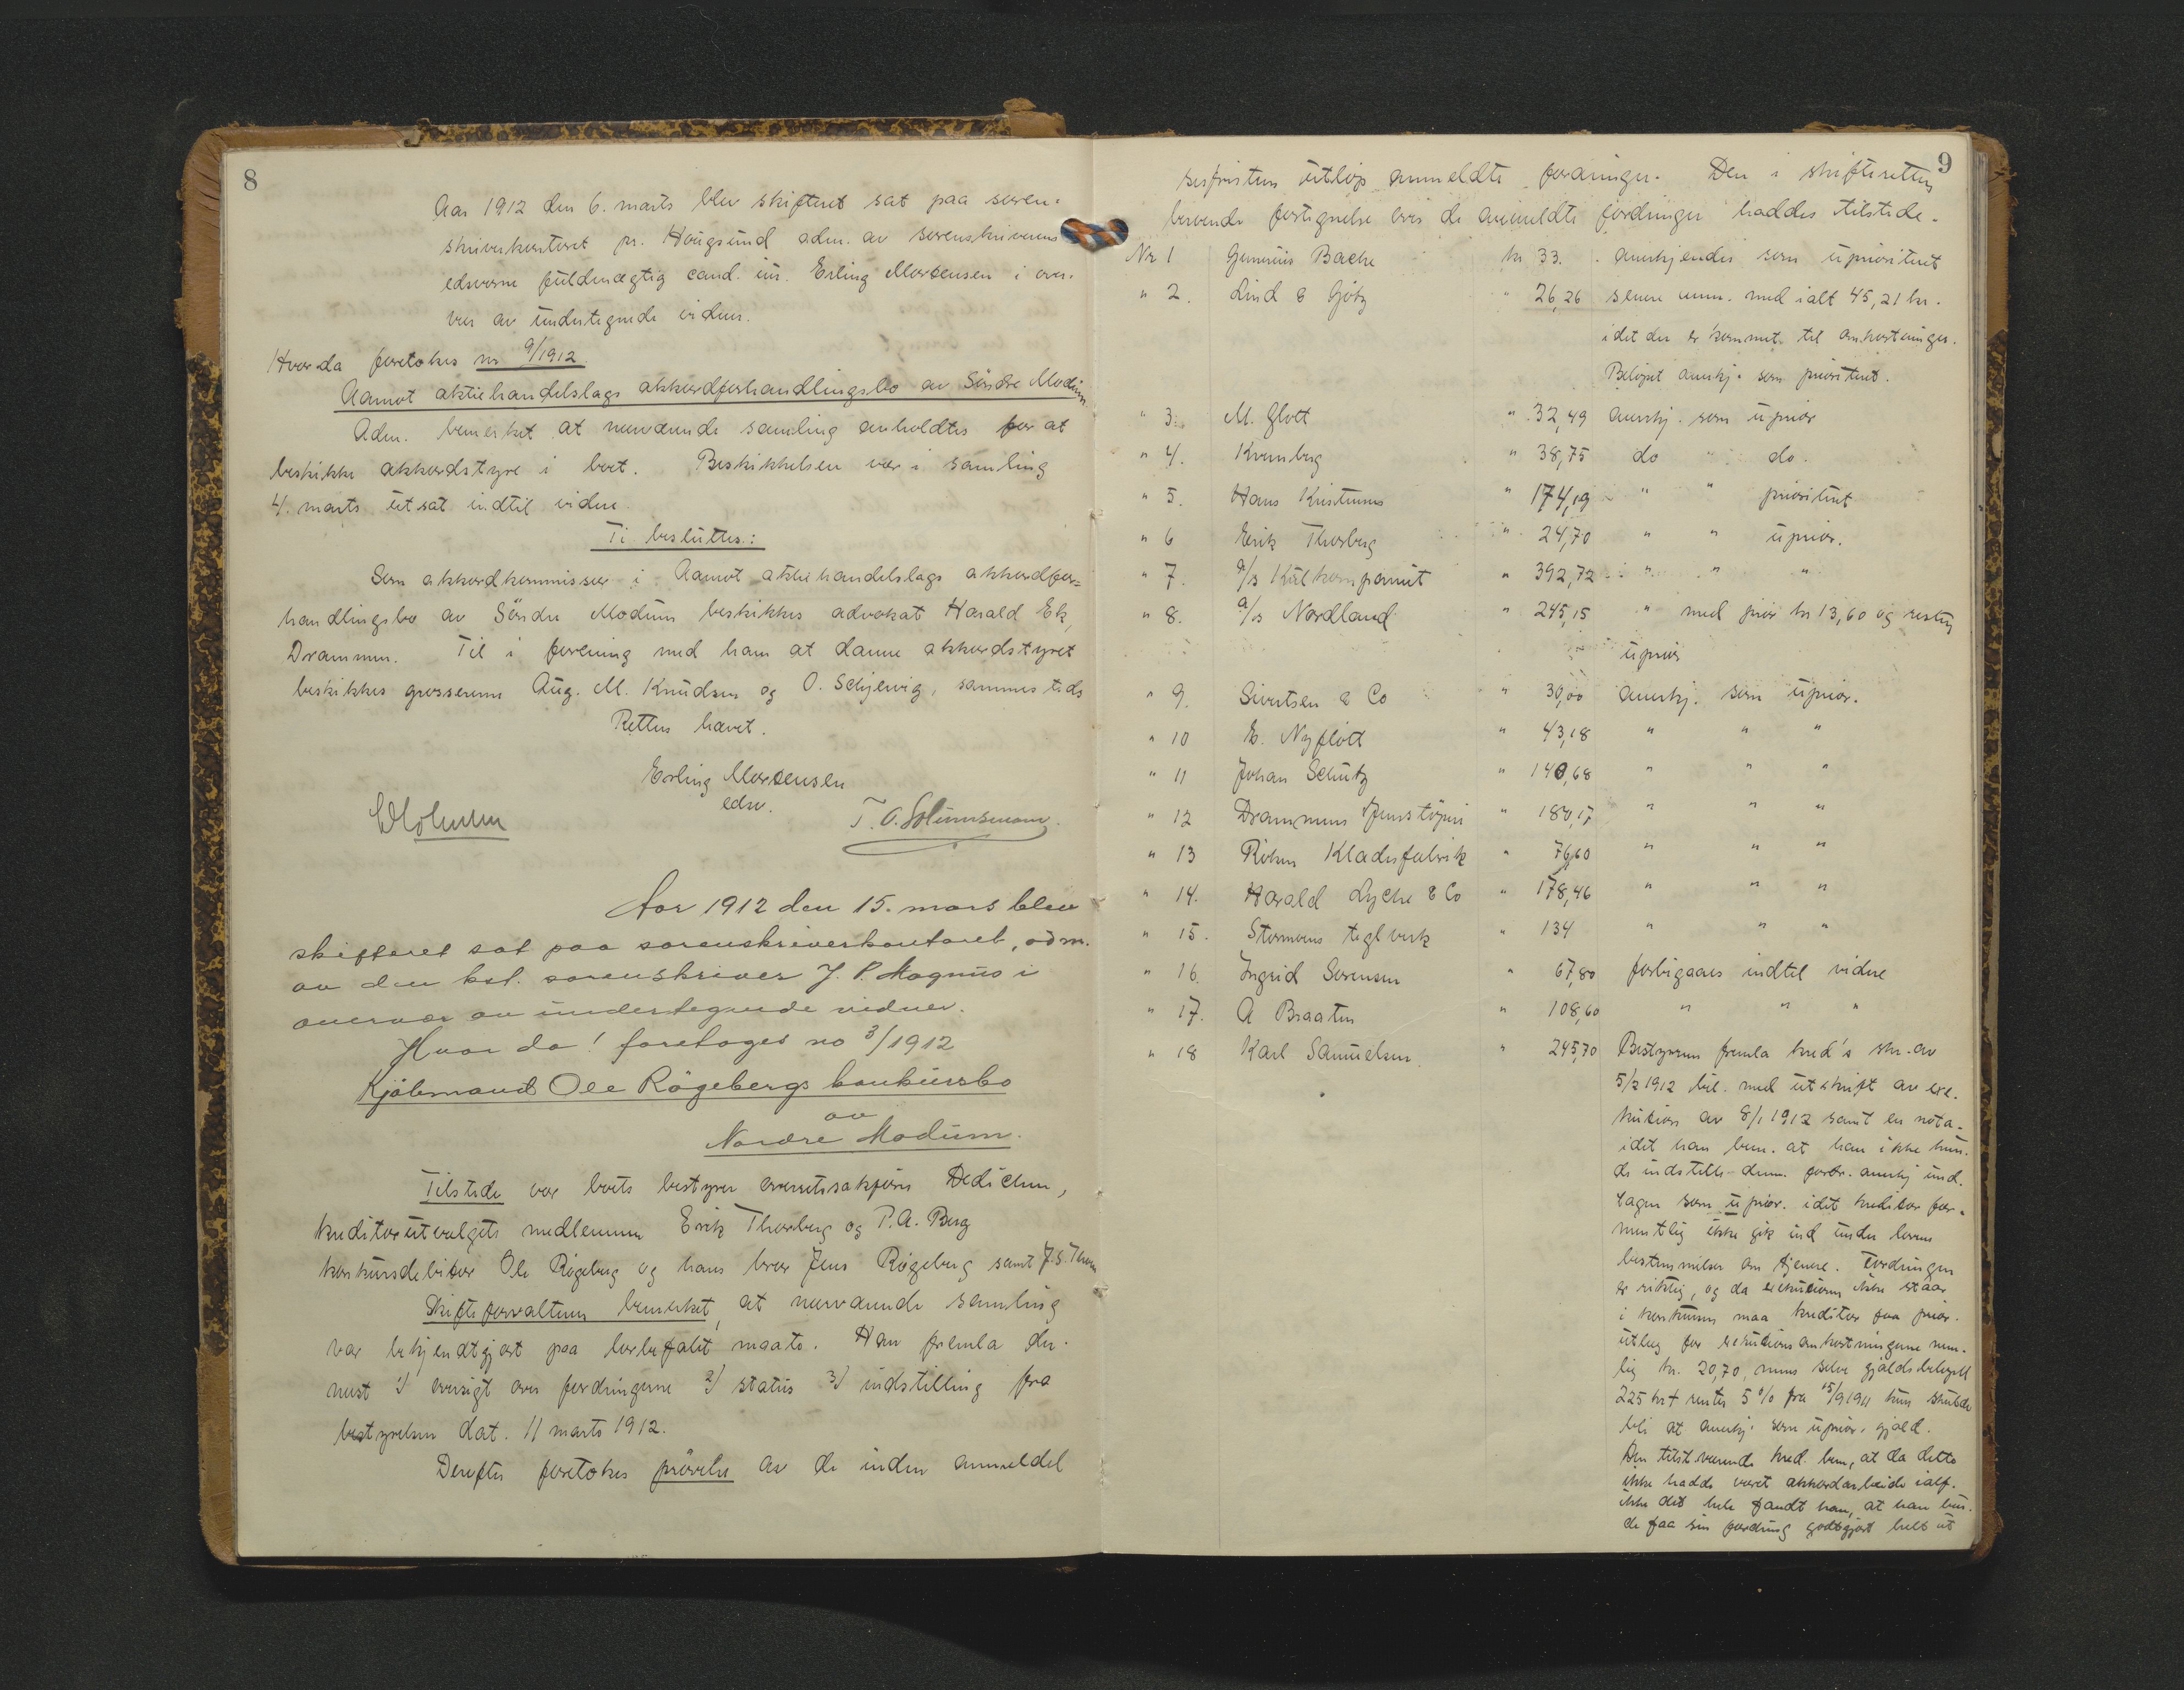 8
Aar 1912 den 6. marts blev skifteret sat paa soren-
skriverkontoret pr. Hougsund adm. av sorenskriverens
edsvorne fuldmægtig cand. jur. Erling Mortensen i over-
vær av undertegnede vidner.
Hvorda foretokes nr. 9/1912
Aamot aktiehandelslags akkordforhandlingsbo av Søndre Modum
Adm. bemerket at nærværende samling avholdtes for at
beskikke akkordstyre i boet. Beskikkelsen var i samling
4. marts utsat indtil videre.
Ti besluttes:
Som akkordkommissær i Aamot aktiehandelslags akkordfor-
handlingsbo av Søndre Modum beskikkes advokat Harald Ek,
Drammen. Til i forening med ham at danne akkordstyret
beskikkes grossererne Aug. M. Knudsen og O. Schjervig, sammesteds
Retten hævet.
Erling Mortensen
edsv.
Aar 1912 den 15. mars blev
skifteret sat paa sorenskriverkontoret, adm.
av den kst. sorenskriver J. P. Magnus i
overvær av undertegnede vidner.
Hvor da! foretoges no 3/1912
Kjøbmand Ole Røgebergs konkursbo
av
Nordre Modum.
Tilstede var boets bestyrer overretssakfører Dedichen,
kreditorutvalgets medlemmer Erik Thorberg og P.A. Berg
konkursdebitor Ole Røgeberg og hans bror Jens Røgeberg samt J.S.
Skifteforvalteren bemerket, at nærværende samling
var bekjendtgjort paa lovbefalet maate. Han fremla der-
næst 1) oversigt over fordringerne 2) status 3) indstilling fra
bestyrelsen dat. 11 marts 1912.
Derefter foretokes prøvelse av de inden anmeldel
9
sesfristens utløp anmeldte fordringer. Den i skifteretten
beroende fortegnelse over de anmeldte fordringer haddes tilstede.
Nr 1 Gunerius Bache kr 33. anerkjendes som uprioritert
" 2. Lind & Götz " 26,26 senere anm. med ialt 45,21 kr.
idet der er kommet til omkostninger.
Beløpet anerkj. som prioritert.
" 3. M. Glott " 32,49 anerkj. som uprior
" 4. Kremberg " 38,75 do " do.
" 5. Hans " 174,19 " " prioritert
" 6 Erik Thorberg " 24,70 " " uprior.
" 7. a/s Kulkompaniet " 392,72 " " "
" 8. a/s Nordland " 245,15 " med prior kr 13,60 og resten
uprior
" 9. Sivertsen & Co " 30,00 anerkj. som uprior.
" 10 E. Nyflöt " 43,18 " " "
" 11 Johan Schutz " 140,68 " " "
" 12 Drammens Jernstøperi " 180,17 " " "
" 13 Klædesfabrik " 76,60 " " "
" 14. Harald Lyche & Co " 178,46 " " "
" 15. Strømmens teglverk " 134 " " "
" 16. Ingrid Sørensen " 67,80 forbigaaes indtil videre
" 17. A Braaten " 108,60 " " "
" 18 Karl Samuelsen " 245,70 Bestyreren fremla kred's skr. av
5/2 1912 bil. med utskrift av exe-
kution av 8/1 1912 samt en nota-
idet han bem. at han ikke kun-
de indstille denne fordr. anerkj und-
tagen som uprior. idet kreditor for-
mentlig ikke gik ind under lovens
bestemmelser om tjenere. Fordringen
er riktig, og da executionen ikke staar
i konkursen maa kreditor faa prior.
utlæg for executionsomkostningerne nem-
lig kr. 20,70, mens selve gjældsbeløpet
225 kr + renter 5 % fra 15/9 1911 kun skulde
bli at anerkj. som uprior. gjæld.
Den tilstedeværende kred. bem, at da dette
ikke hadde været akkordarbeide ialf.
ikke det hele fandt han, at han bur-
de faa sin fordring godtgjort helt ut